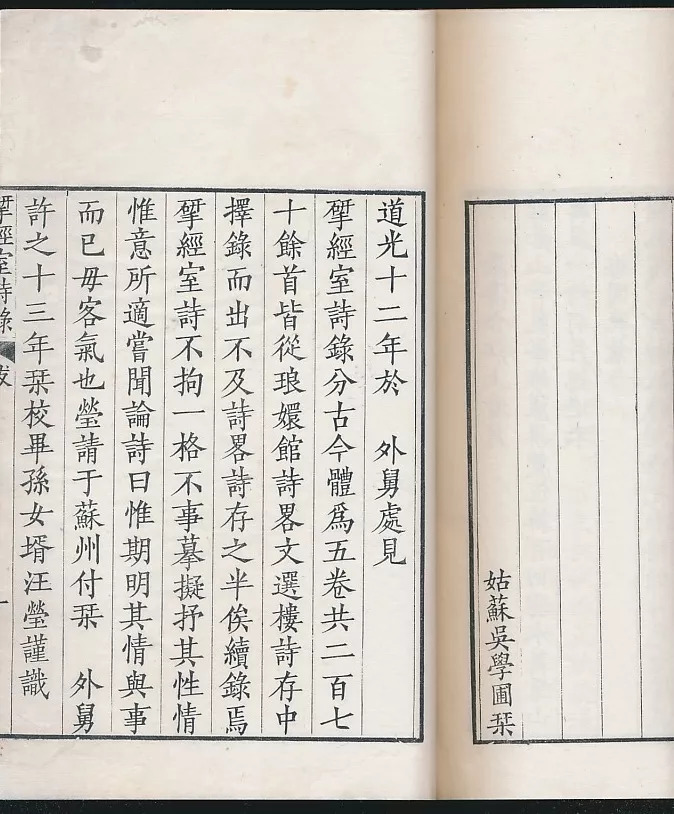 姑蘇吳學圃栞
道光十二年於　外舅處見
揅經室詩錄分古今體爲五卷共二百七
十餘首皆從琅嬛館詩畧文選樓詩存中
擇錄而出不及詩畧詩存之半俟續錄焉
揅經室詩不拘一格不事摹擬抒其性情
惟意所適嘗聞論詩曰惟期明其情與事
而已毋客氣也瑩請于蘇州付栞　外舅
許之十三年栞校畢孫女壻汪瑩謹識
揅經室詩錄 跋 一